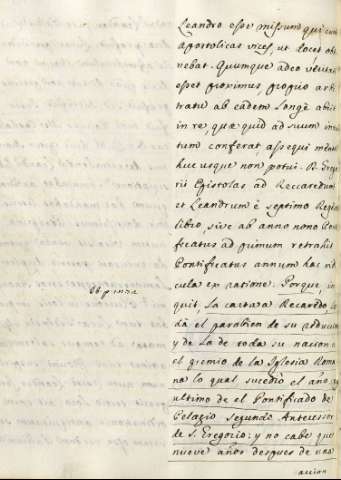 Leandro esse missum qui cum
apostolicas vices, ut docet obti
nebat. Quumque adeo veritati
esset proximus, proprio arbi
tratu ab eadem longè abiit
in re, quæ quid ad suum insti
tutum conferat assequi
huc usque non potui. B. Grego
rii Epistolas ad Reccaredum
et Leandrum è septimo Regis
libro, sive ab anno nono Pon
ficatus ad primum retrahit
Pontificatus annum hac ridi
cula ex ratione. Porque, in
quit, la carta a Recaredo, le
dà el parabien de su
y de la de toda su nacion a
el gremio de la Iglesia Roma
na lo qual sucediò el año
ultimo de el Pontificado de
Pelagio segundo Antecessor
de S. Gregorio: y no cabe que
nueve años despues de una
accion